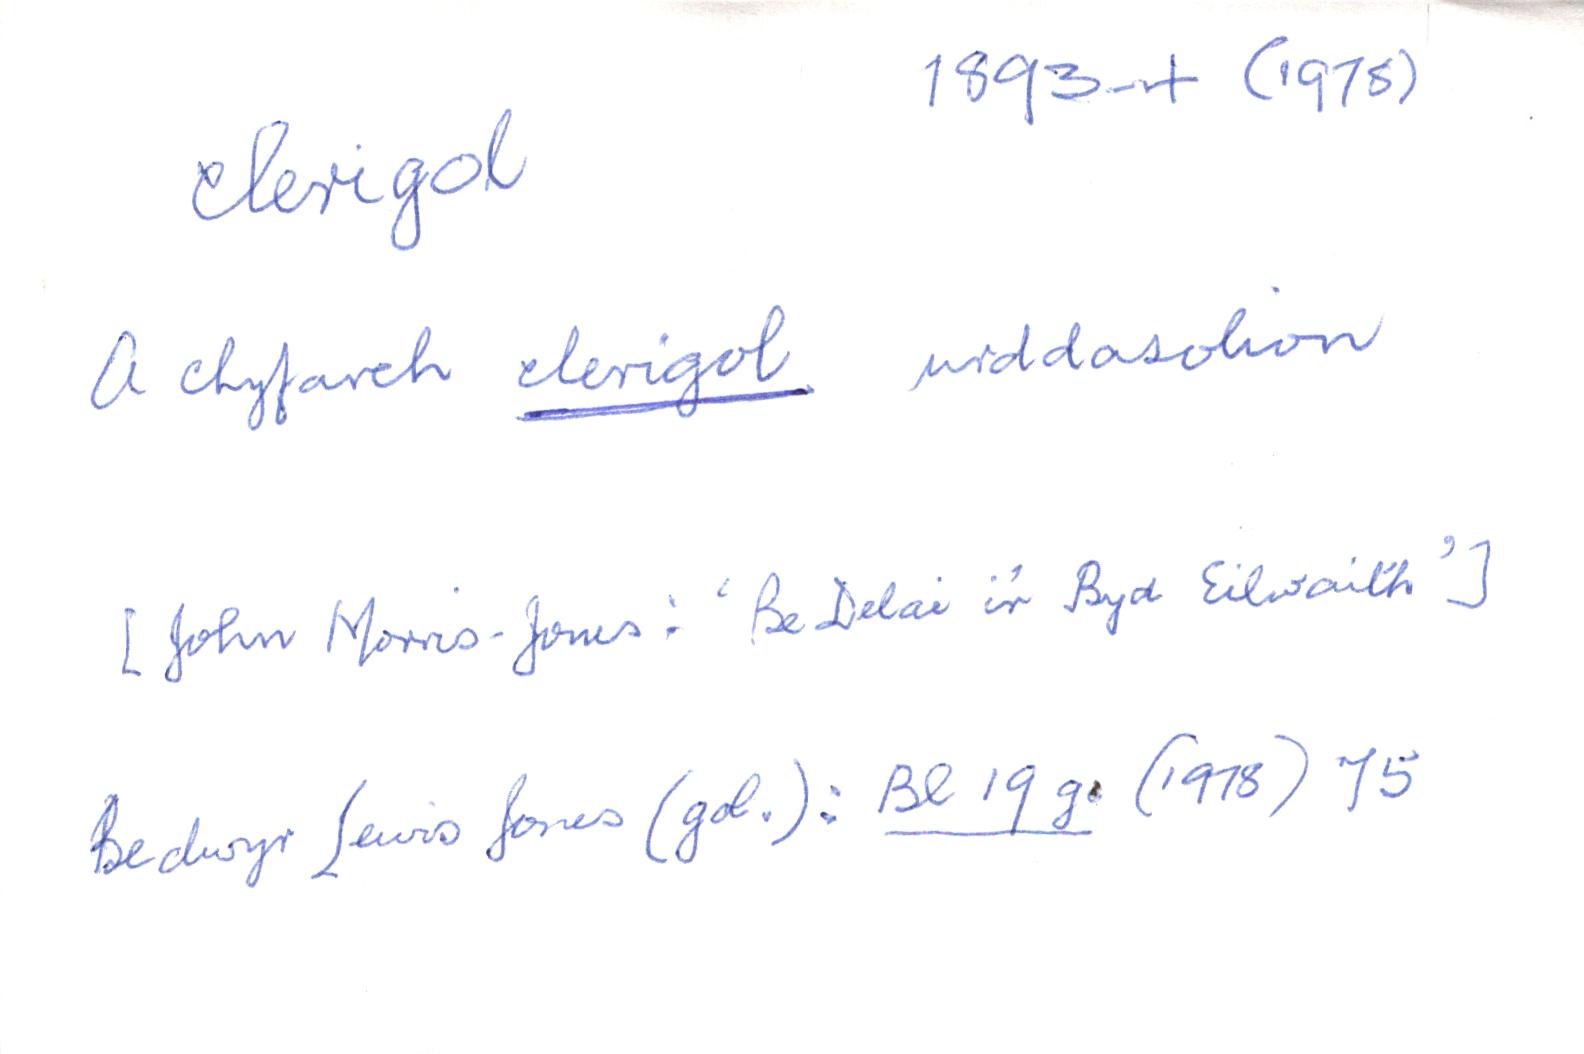 1893-+ (1978)
clerigol
A chyfarch clerigol urddasolion
[John Morris-Jones: 'Be Delai i'r Byd Eilwaith']
Bedwyr Lewis Jones (gol.): Bl 19 g. (1978) 75